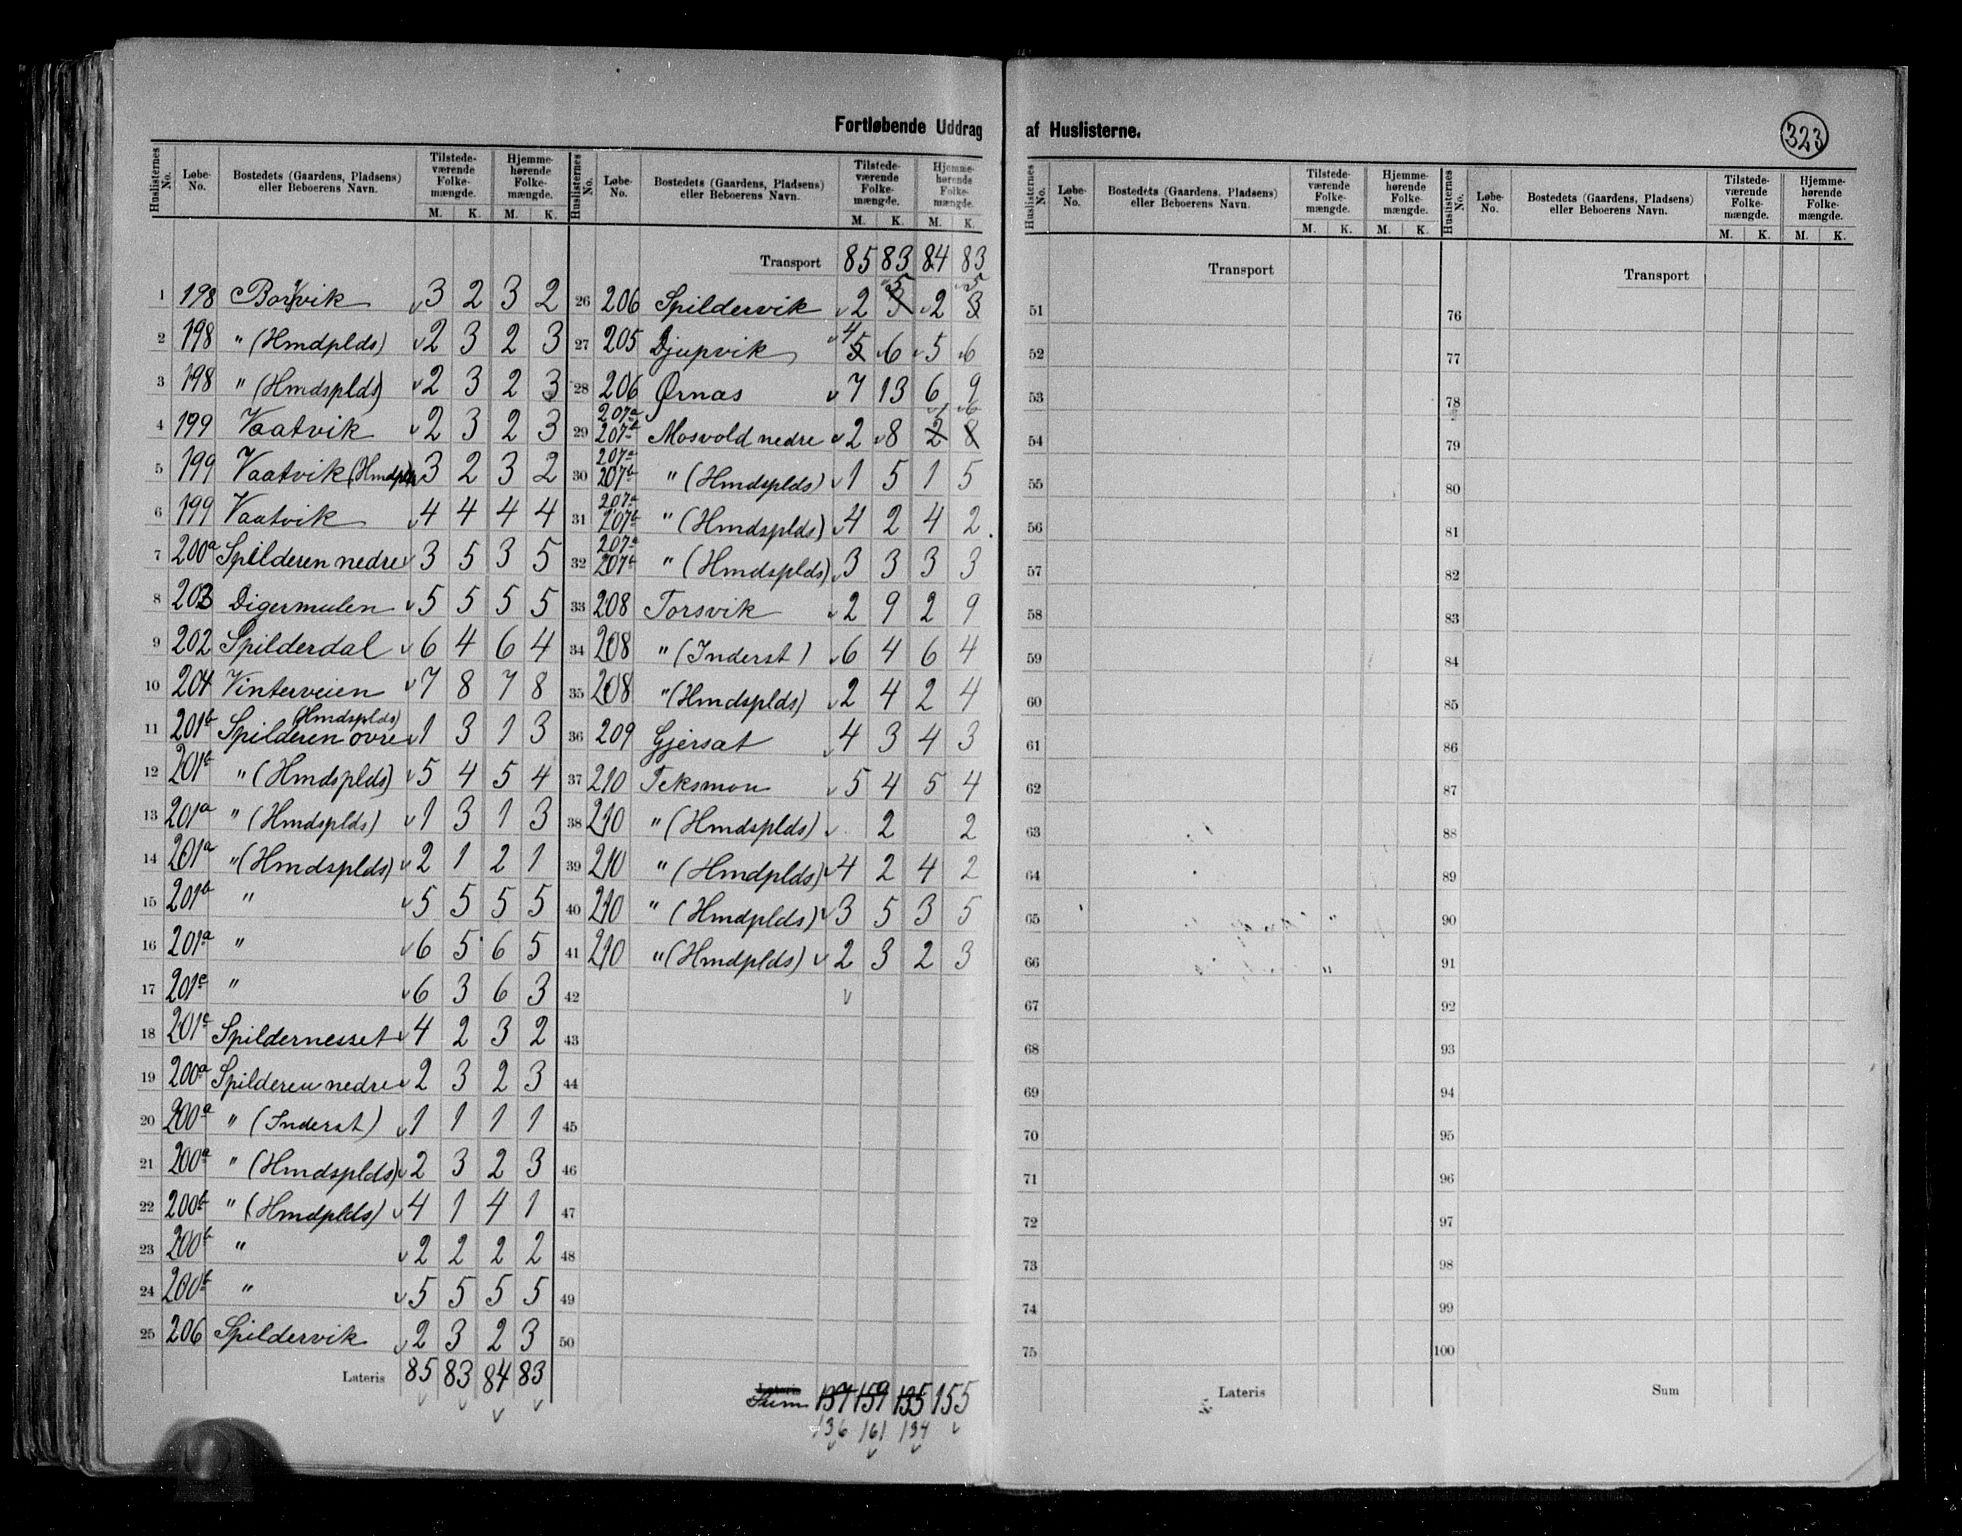 Fortløbende Uddrag af Huslisterne.
323
Huslisternes No. Løbe-No. Bostedets (Gaardens, Pladsens) eller Beboerens Navn. Tilstedeværende Folkemængde. M. K. Hjemmehørende Folkemængde. M. K.
1 198 Borvik 3 2 3 2
2 198 " (Hmdplds) 2 3 2 3
3 198 " (Hmdsplds) 2 3 2 3
4 199 Vaatvik 2 3 2 3
5 199 Vaatvik (Hmdplds 3 2 3 2
6 199 Vaatvik 4 4 4 4
7 200a Spilderen nedre 3 5 3 5
8 203 Digermulen 5 5 5 5
9 202 Spilderdal 6 4 6 4
10 204 Vinterveien 7 8 7 8
11 201b Spilderen øvre (Hmdsplds) 1 3 1 3
12 201b " (Hmdsplds) 5 4 5 4
13 201a " (Hmdsplds) 1 3 1 3
14 201a " (Hmdsplds) 2 1 2 1
15 201b " 5 5 5 5
16 201a " 6 5 6 5
17 201c " 6 3 6 3
18 201c Spildernesset 4 2 3 2
19 200a Spilderen nedre 2 3 2 3
20 200a " (Inderst) 1 1 1 1
21 200a " (Hmdsplds) 2 3 2 3
22 200b " (Hmdplds) 4 1 4 1
23 200b " 2 2 2 2
24 200b " 5 5 5 5
25 206 Spildervik 2 3 2 3
Lateris 85 83 84 83
Huslisternes No. Løbe-No. Bostedets (Gaardens, Pladsens) eller Beboerens Navn. Tilstedeværende Folkemængde. M. K. Hjemmehørende Folkemængde. M. K.
Transport 85 83 84 83
26 206 Spildervik 2 3 5 2 3 5
27 205 Djupvik 5 4 6 5 6
28 206 Ørnæs 7 13 6 9
29 207a 207b Mosvold nedre 2 8 2 8 6
30 207a 207b " (Hmdsplds) 1 5 1 5
31 207a 207b " (Hmdsplds) 4 2 4 2
32 207a 207b " (Hmdsplds) 3 3 3 3
33 208 Torsvik 2 9 2 9
34 208 " (Inderst) 6 4 6 4
35 208 " (Hmdsplds) 2 4 2 4
36 209 Gjersæt 4 3 4 3
37 210 Teksmon 5 4 5 4
38 210 " (Hmdsplds) 2 2
39 210 " (Hmdplds) 4 2 4 2
40 210 " (Hmdplds) 3 5 3 5
41 210 " (Hmdplds) 2 3 2 3
42
43
44
45
46
47
48
49
50
Lateris
Sum 137 159 135 155
136 161 134
Huslisternes No. Løbe-No. Bostedets (Gaardens, Pladsens) eller Beboerens Navn. Tilstedeværende Folkemængde. M. K. Hjemmehørende Folkemængde. M. K.
Transport
51
52
53
54
55
56
57
58
59
60
61
62
63
64
65
66
67
68
69
70
71
72
73
74
75
Lateris
Huslisternes No. Løbe-No. Bostedets (Gaardens, Pladsens) eller Beboerens Navn. Tilstedeværende Folkemængde. M. K. Hjemmehørende Folkemængde. M. K.
Transport
76
77
78
79
80
81
82
83
84
85
86
87
88
89
90
91
92
93
94
95
96
97
98
99
100
Sum